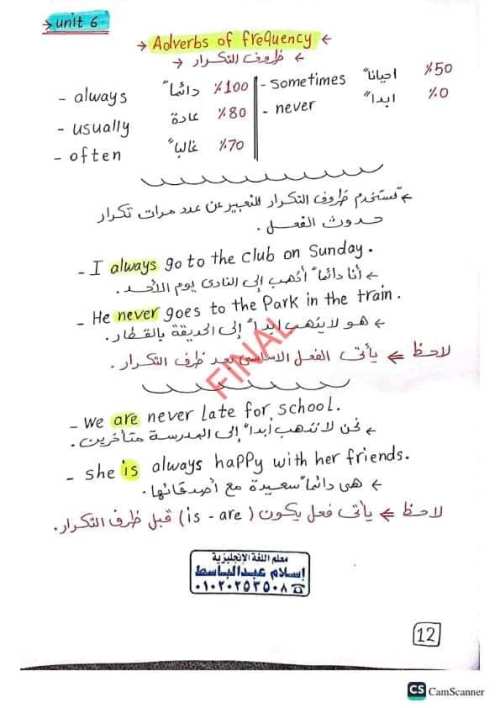 → unit 6
→ Adverbs of frequency ←
← ظروف التكرار →
- always دائماً %100
- usually عادة %80
- often غالباً %70
- sometimes احياناً %50
- never ابداً %0
← تستخدم ظروف التكرار للتعبير عن عدد مرات تكرار
حدوث الفعل.
- I always go to the club on Sunday.
← أنا دائماً أذهب إلى النادى يوم الأحد.
- He never goes to the Park in the train.
← هو لا يذهب ابداً إلى الحديقة بالقطار.
لاحظ ← يأتى الفعل الاساسى بعد ظرف التكرار.
FINAL
- we are never late for school.
← نحن لا نذهب أبداً إلى المدرسة متأخرين.
- she is always happy with her friends.
← هى دائماً سعيدة مع أصدقائها.
لاحظ ← يأتى فعل يكون (is - are) قبل ظرف التكرار.
معلم اللغة الإنجليزية
إسلام عبدالباسط
☎ ٠١٠٢٠٢٥٢٥٠٨
12
CS CamScanner